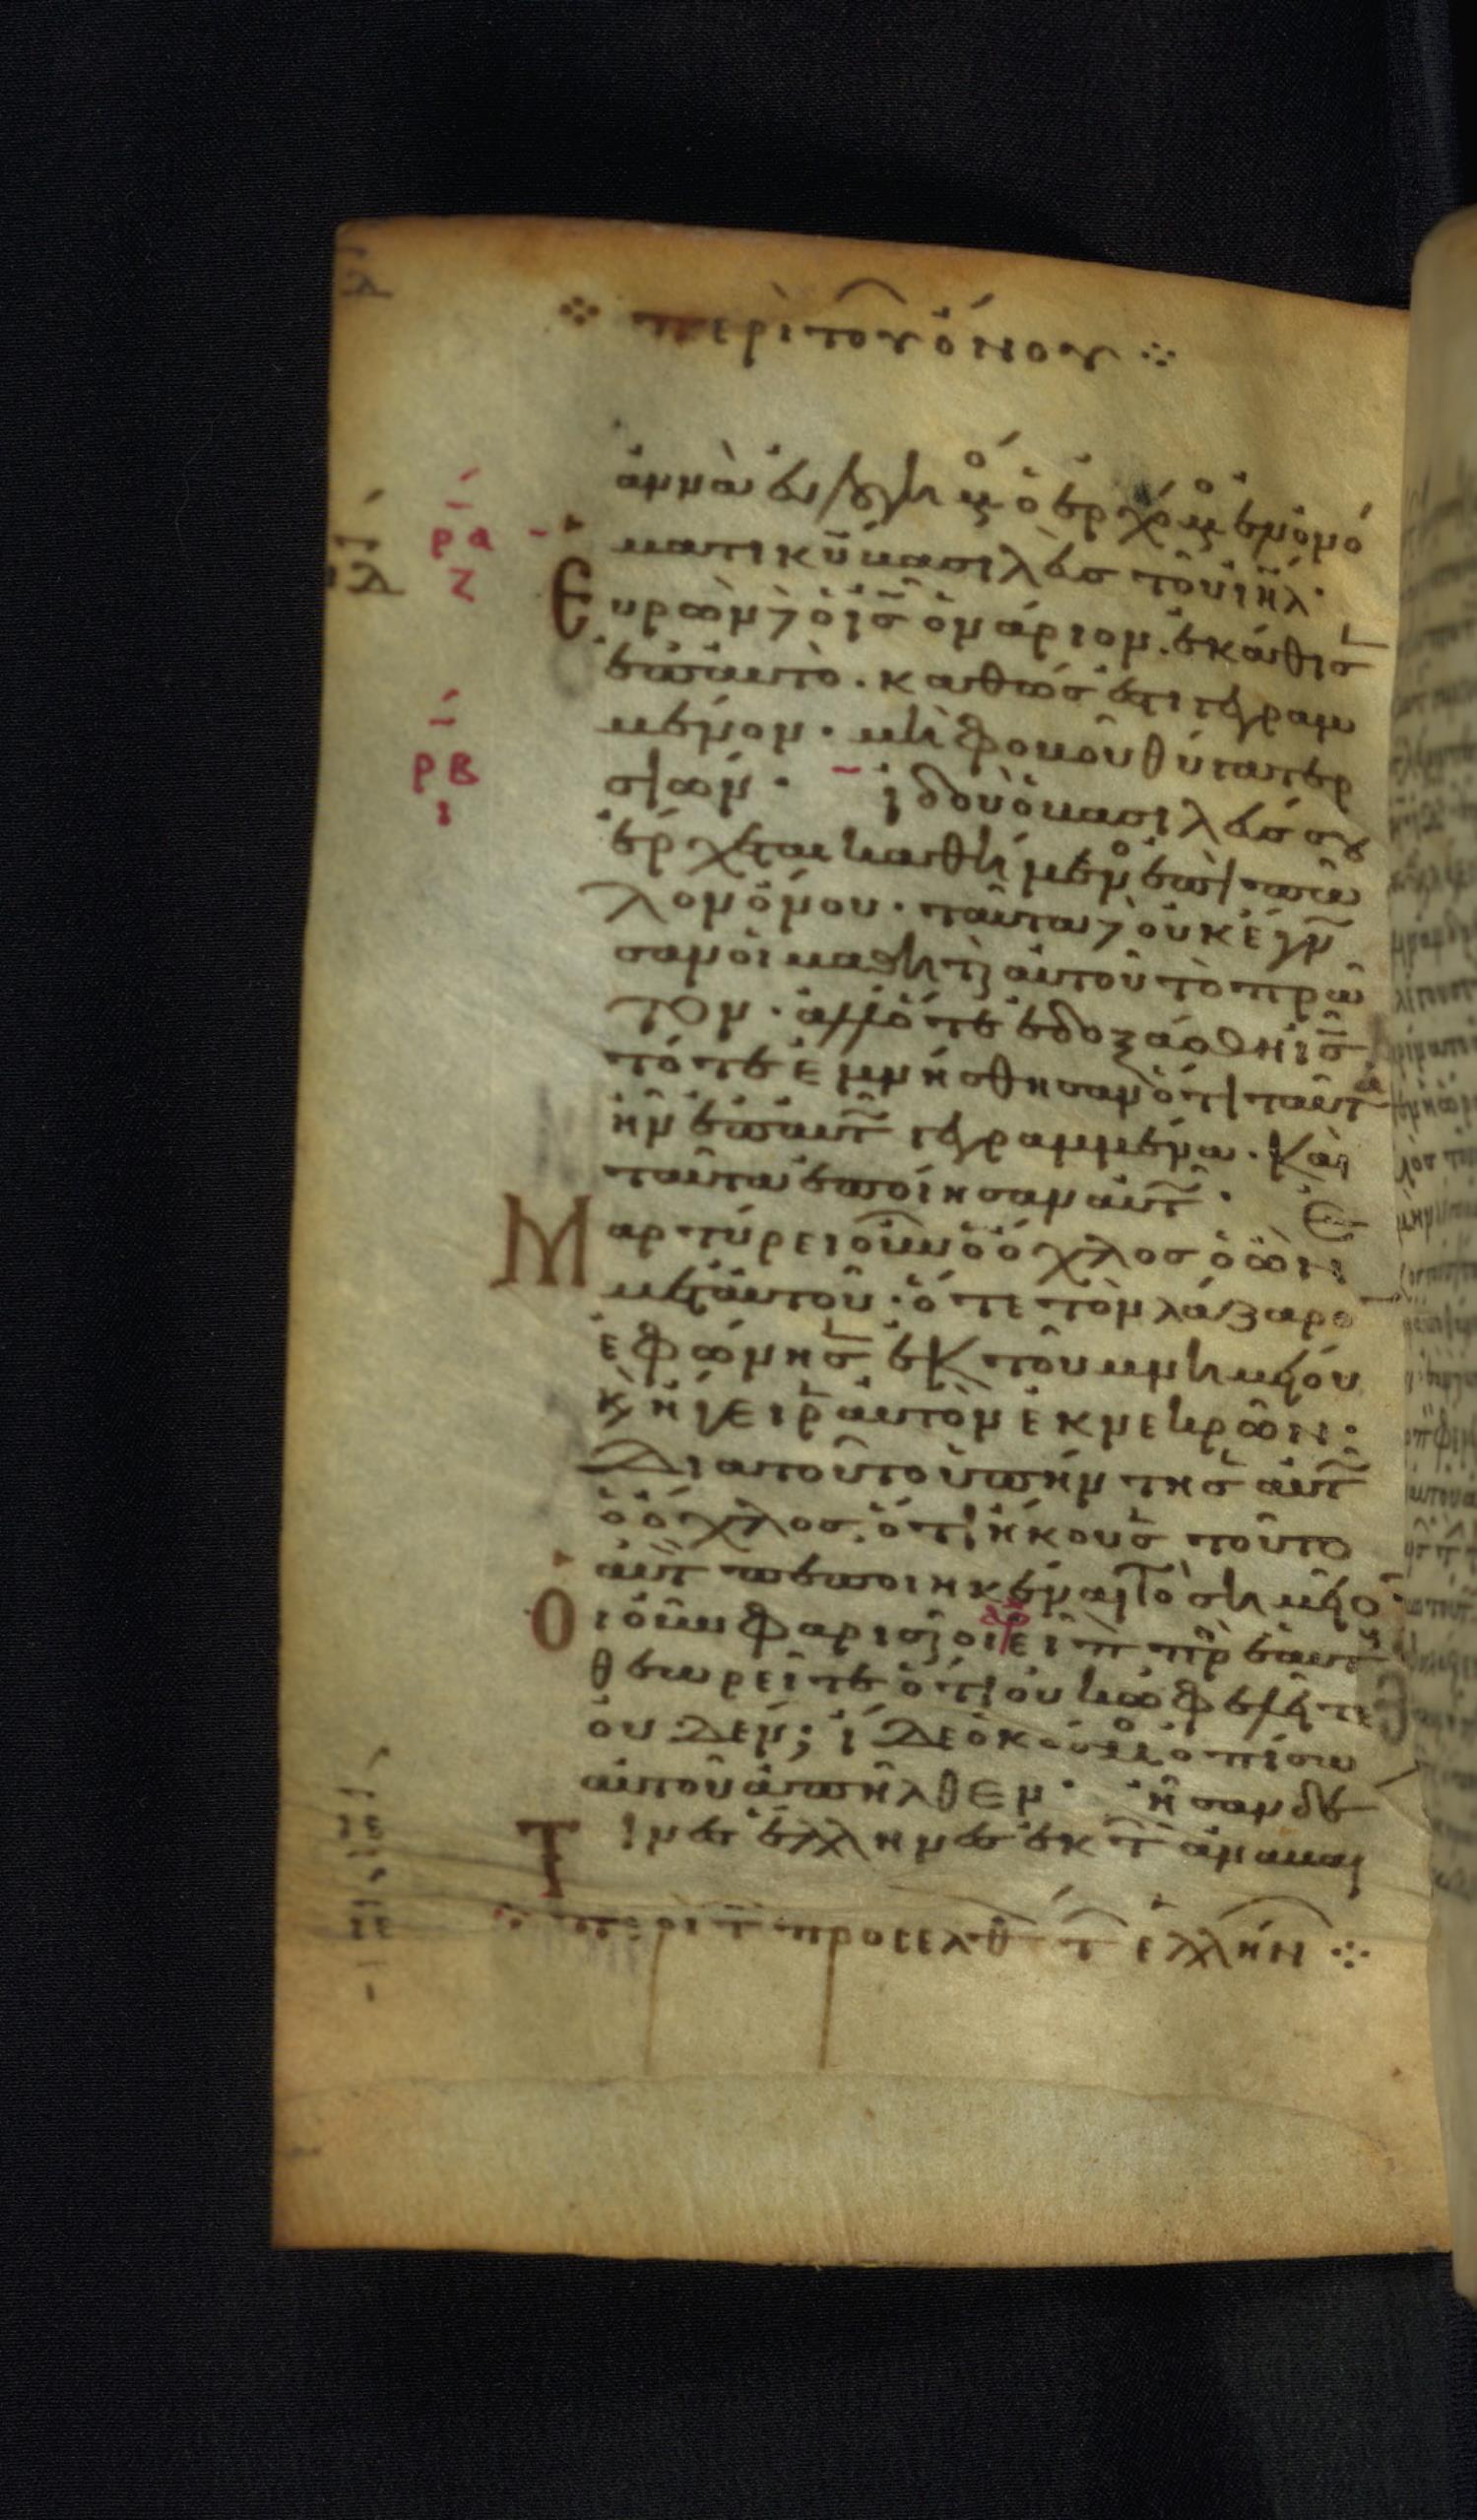 περὶ τοῦ ὄνου
ὡσαννὰ εὐλογημένος ὁ ἐρχόμενος ἐν ὀνό
ματι κυ βασιλεὺς τοῦ ιηλ·
ρα
ζ
Ευρὼν δὲ ὁ ις ὀνάριον. ἐκάθισ
ἐπ' αυτὸ. καθώς ἐστι γεγραμ
μένον· μὴ φοβοῦ θύγατερ
ρβ
ι
σιών· ἰδοὺ ὁ βασιλεύς σου
ἔρχεται καθήμενος ἐπὶ πῶ
λον ὄνου. ταῦτα δὲ οὐκ ἔγν
σαν οἱ μαθηταὶ αὐτοῦ τὸ πρῶ
τον. ἀλλ' ὅτε ἐδοξάσθη ις
τότε ἐμνήσθησαν ὅτι ταῦτα
ἦν ἐπ' αὐτ γεγραμμένα. Καὶ
ταῦτα ἐποίησαν αὐτ.
Μαρτύρει οὖν ὁ ὄχλος ὁ ὢν
μετ' αὐτοῦ. ὅτε τὸν λάζαρο
ἐφώνησ ἐκ τοῦ μνημείου
κ ἤγειρ αὐτὸν ἐκ νεκρῶν.
Δια τοῦτο ὑπήντησ αὐτ
ὁ ὄχλος. ὅτι ἤκουσ τοῦτο
αὐτ πεποιηκέναι τὸ σημεῖο
Οἱ οὖν φαρισαῖοι εἶπ πρ ἑαυτ
θεωρεῖτε ὅτι οὐκ ὠφελεῖτε
οὐδέν; ἴδε ὁ κόσμος ὀπίσω
αὐτοῦ ἀπῆλθεν. ἦσαν δέ
Τινες ἕλληνες ἐκ τ ἀναβαι
περὶ τ προσελθ τ ἑλλήν